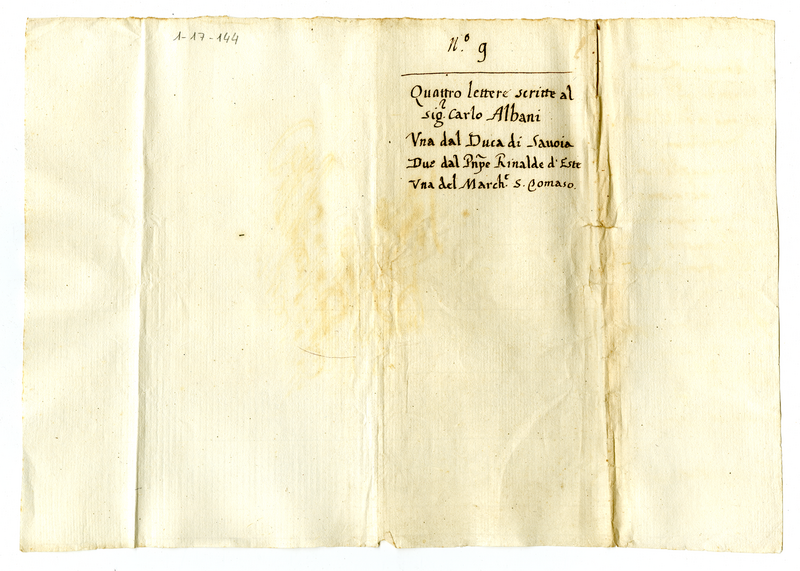 1-17-144
N.º 9
Quattro lettere scritte al
Sig.r Carlo Albani
Vna dal Duca di Sauoia
Due dal Pnpe Rinalde d'Este
Vna del March.e S. Tomaso.